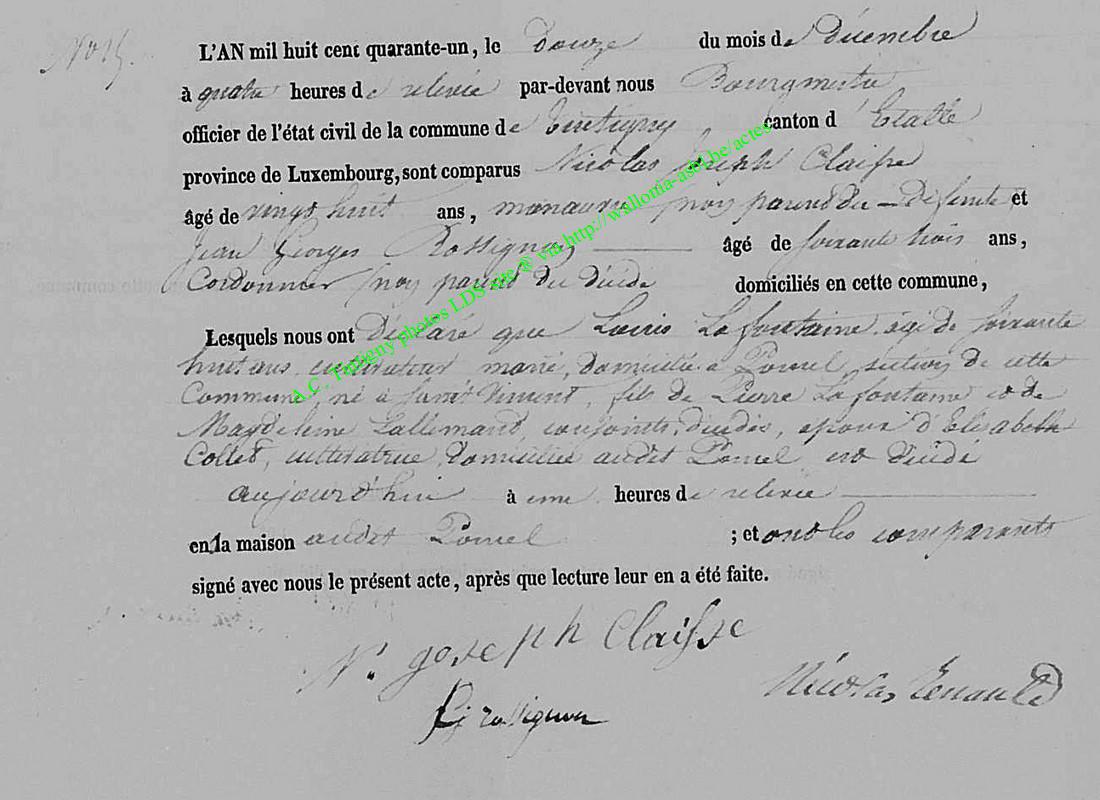 L'AN mil huit cent quarante-un, le douze du mois de décembre
à quatre heures de relevée par-devant nous Bourgmestre
officier de l'état civil de la commune de Tintigny canton d'Etalle
province de Luxembourg, sont comparus Nicolas Joseph Claisse
âgé de vingt huit ans, manœuvre, non parent du défunt et
Jean Georges Rossignon âgé de soixante trois ans,
Cordonnier, non parent du décédé domiciliés en cette commune,
Lesquels nous ont déclaré que Louis Lafontaine, âgé de soixante
huit ans, cultivateur, marié, domicilié à Poncel, section de cette
Commune, né à Saint Vincent, fils de Pierre Lafontaine et de
Magdeleine Lallemant, conjoints, décédés, époux d'Elisabeth
Collet, cultivatrice, domiciliée audit Poncel est décédé
aujourd'hui à une heures de relevée
en la maison audit Poncel ; et ont les comparants
signé avec nous le présent acte, après que lecture leur en a été faite.
N. Joseph Claisse
Rossignon
Nicolas
A.C. Tintigny photos LDS site @ via http://wallonia-asbl.be/actes